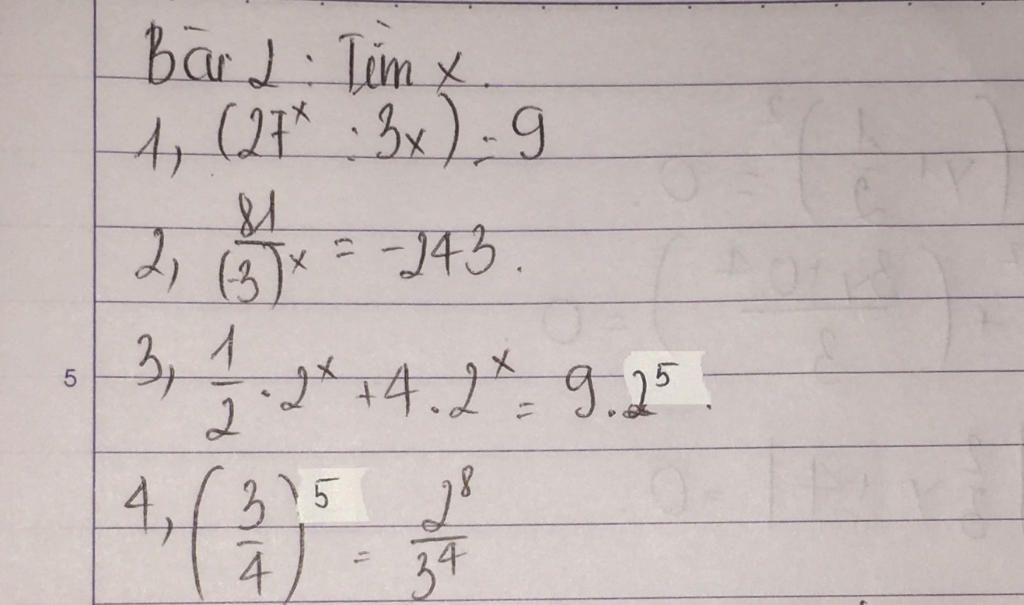 Bài 2: Tìm x.
1, (27^x : 3x) = 9
2, 81/(-3)^x = -243.
3, 1/2 . 2^x + 4 . 2^x = 9 . 2^5.
5
4, (3/4)^5 = 2^8/3^4